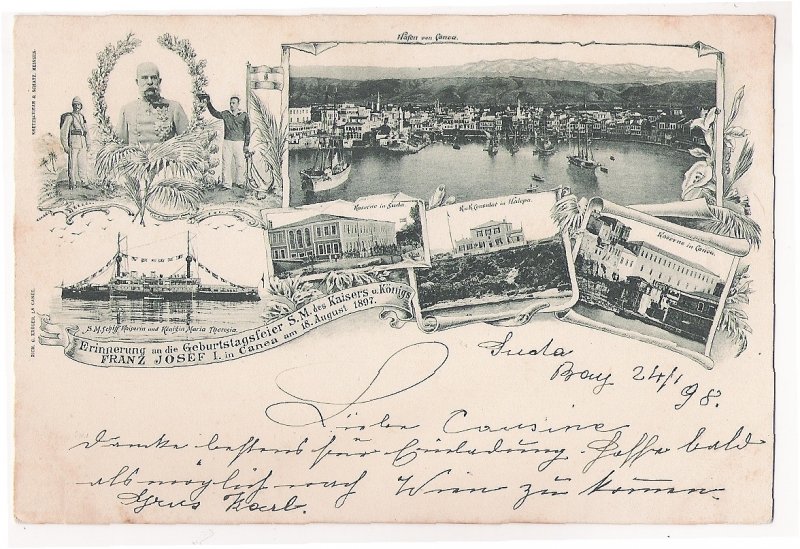 Hafen von Canea.
Kaserne in Suda
K.u.K. Consulat in Halepa.
Kaserne in Canea.
S.M. Schiff Kaiserin und Königin Maria Theresia
Erinnerung an die Geburtstagsfeier S.M. des Kaisers u. Königs
FRANZ JOSEF I. in Canea am 18. August 1897.
Suda
Bay 24/1
98.
Liebe Cousine
Danke bestens für Einladung. Hoffe bald
als möglich nach Wien zu kommen
Gruss Karl.